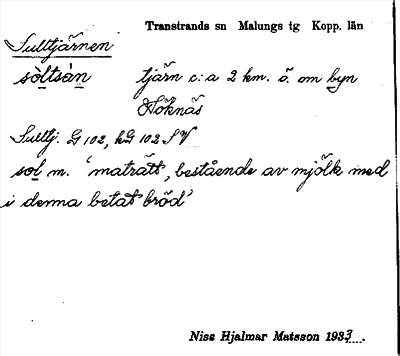 Transtrands sn Malungs tg Kopp. län
Sulltjärnen
sòltsàn tjärn c:a 2 km. ö. om byn
Nöknäs
Sulltj. G 102, hG 102 SV
sol m. 'maträtt, bestående av mjölk med
i denna betat bröd'
Niss Hjalmar Matsson 1933.